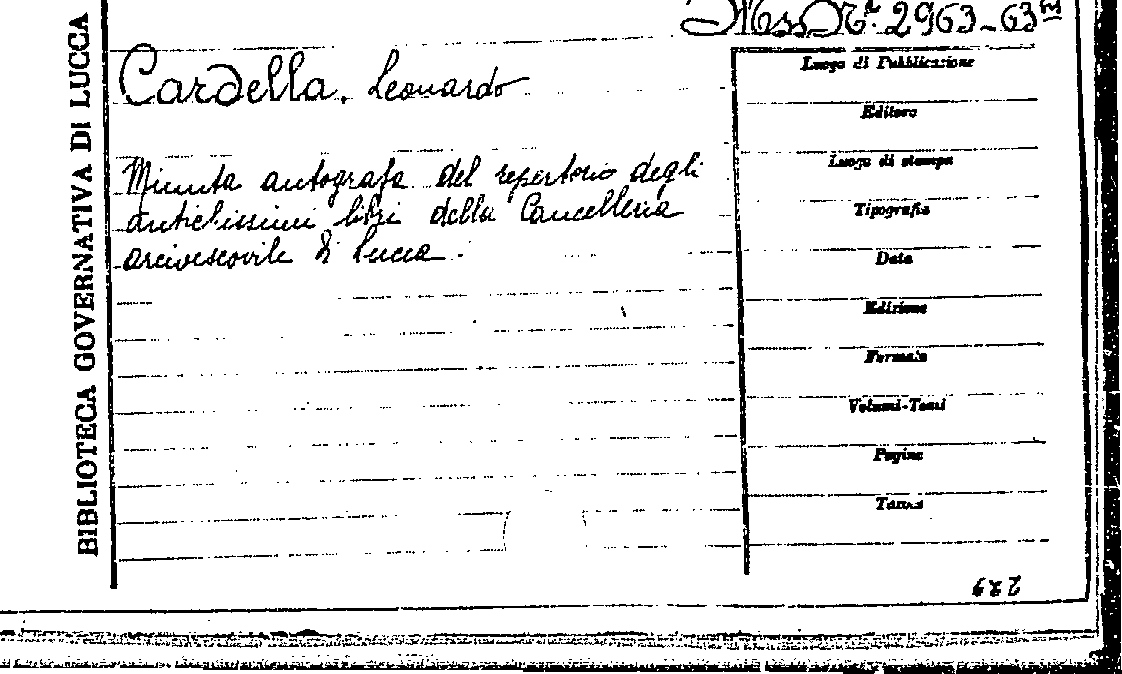 BIBLIOTECA GOVERNATIVA DI LUCCA
Mss. N.i 2963-63
Cardella, Leonardo
Minuta autografa del repertorio degli
antichissimi libri della Cancelleria
arcivescovile di Lucca.
Luogo di Pubblicazione
Editore
Luogo di stampa
Tipografia
Data
Edizione
Formato
Volumi-Tomi
Pagine
Tavole